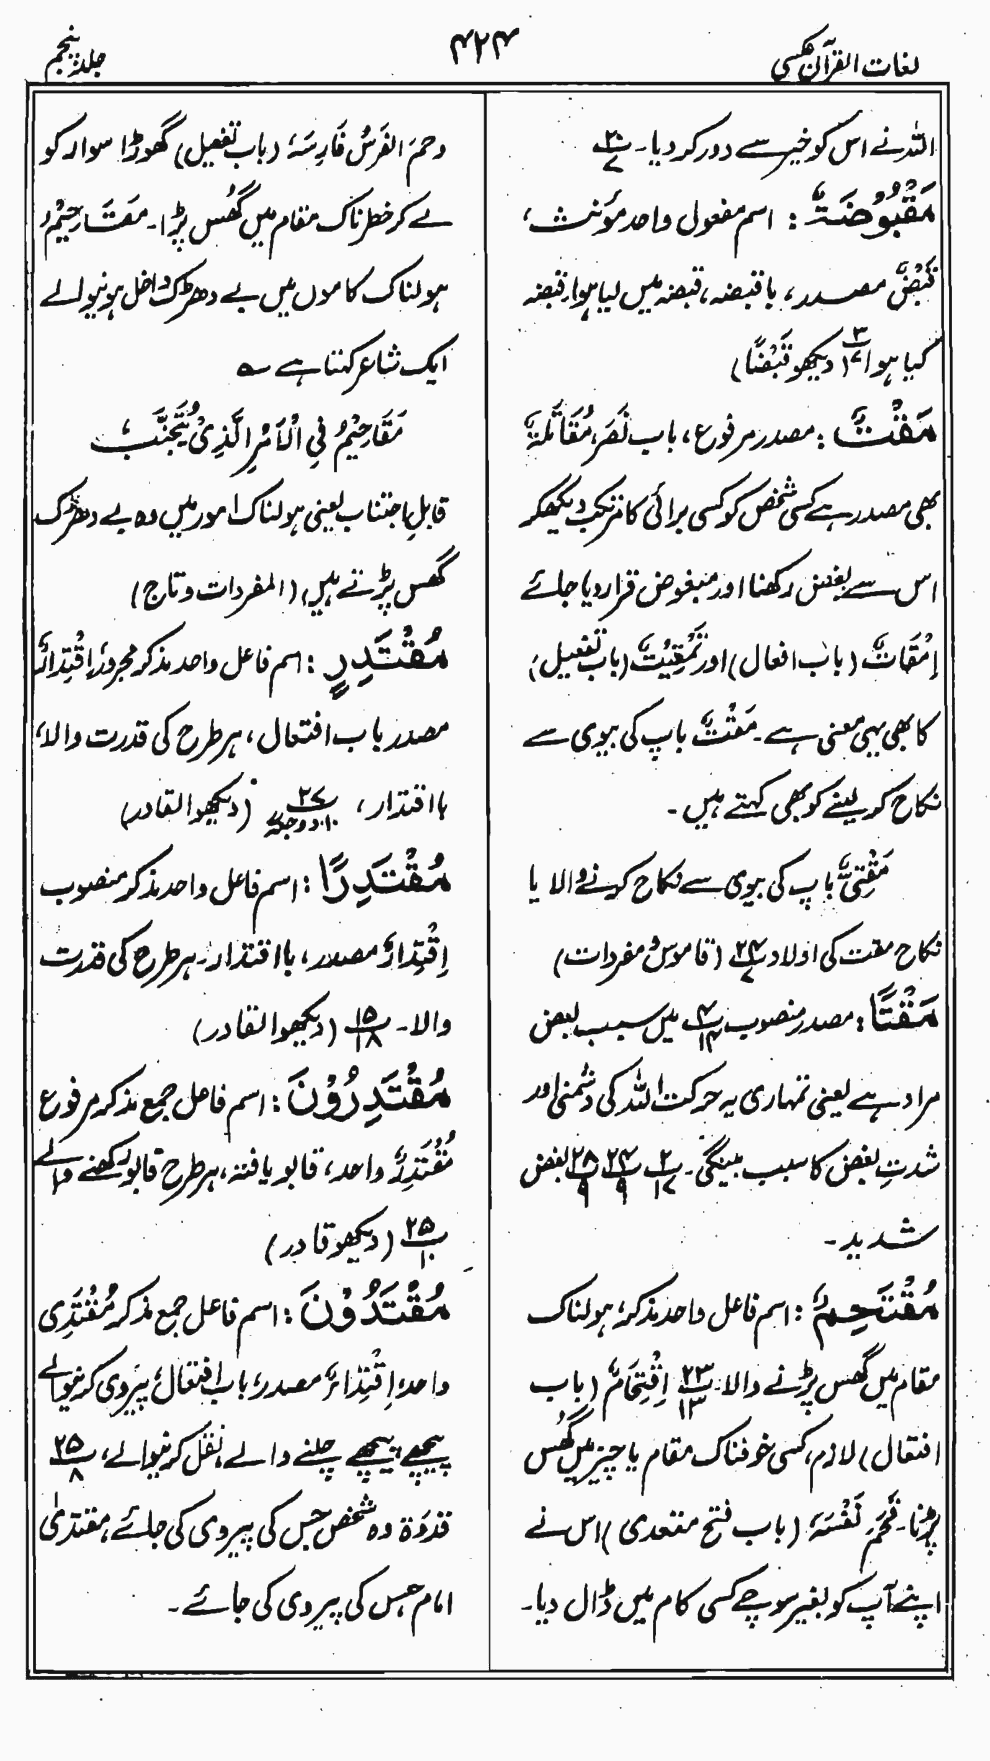 لغات القرآن عکسی
۴۲۴
جلد پنجم
اللہ نے اس کو خیر سے دور کر دیا۔ پ۲۰/۷
مَقْبُوْضَۃٌ: اسم مفعول واحد مؤنث،
قَبْضٌ مصدر، باقبضہ، قبضہ میں لیا ہوا، قبضہ
کیا ہوا ۳/۷ (دیکھو قَبْضًا)
مَقْتٌ: مصدر مرفوع، باب نَصَرَ، مُقَاتَلَۃٌ
بھی مصدر ہے کسی شخص کو کسی برائی کا مرتکب دیکھ کر
اس سے بغض رکھنا اور مبغوض قرار دیا جائے
اِمْقَاتٌ (باب افعال) اور تَمْقِیْتٌ (باب تفعیل)
کا بھی یہی معنی ہے۔ مَقْتٌ باپ کی بیوی سے
نکاح کر لینے کو بھی کہتے ہیں۔
مَقْتِیٌّ باپ کی بیوی سے نکاح کرنے والا یا
نکاح مقت کی اولاد پ۲۴/۷ (قاموس و مفردات)
مَقْتًا: مصدر منصوب پ۴/۱۴ میں سبب بغض
مراد ہے یعنی تمہاری یہ حرکت اللہ کی دشمنی اور
شدتِ بغض کا سبب بنیگی۔ پ۲/۱۷ پ۲۴/۹ پ۲۸/۹ بغض
شدید۔
مُقْتَحِمٌ: اسم فاعل واحد مذکر، ہولناک
مقام میں گھس پڑنے والا۔ پ۲۳/۱۳ اِقْتِحَامٌ (باب
افتعال) لازم، کسی خوفناک مقام یا چیز میں گھُس
پڑنا۔ قَحَمَ نَفْسَہٗ (باب فتح متعدی) اس نے
اپنے آپ کو بغیر سوچے کسی کام میں ڈال دیا۔
وحمَ الفَرَسُ فَارِسَہٗ (باب تفعیل) گھوڑا سوار کو
لے کر خطرناک مقام میں گھُس پڑا۔ مَقَاحِیْمُ
ہولناک کاموں میں بے دھڑک داخل ہونیوالے
ایک شاعر کہتا ہے ؎
مَقَاحِیْمُ فِی الْاَمْرِ الَّذِیْ یُتَجَنَّبُ
قابلِ اجتناب یعنی ہولناک امور میں وہ بے دھڑک
گھس پڑتے ہیں، (المفردات و تاج)
مُقْتَدِرٍ: اسم فاعل واحد مذکر مجرور، اِقْتِدَارٌ
مصدر باب افتعال، ہر طرح کی قدرت والا،
بااقتدار، پ۲۷/۱۰ دو جگہ (دیکھو القادر)
مُقْتَدِرًا: اسم فاعل واحد مذکر منصوب
اِقْتِدَارٌ مصدر، بااقتدار۔ ہر طرح کی قدرت
والا۔ پ۱۵/۱۸ (دیکھو القادر)
مُقْتَدِرُوْنَ: اسم فاعل جمع مذکر مرفوع
مُقْتَدِرٌ واحد، قابو یافتہ، ہر طرح قابو رکھنے والے
پ۲۵/۱۰ (دیکھو قادر)
مُقْتَدُوْنَ: اسم فاعل جمع مذکر مُقْتَدِی
واحد، اِقْتِدَاءٌ مصدر، باب افتعال، پیروی کرنیوالے
پیچھے پیچھے چلنے والے، نقل کرنیوالے، پ۲۵/۸
قدوۃ وہ شخص جس کی پیروی کی جائے، مقتدیٰ
امام جس کی پیروی کی جائے۔